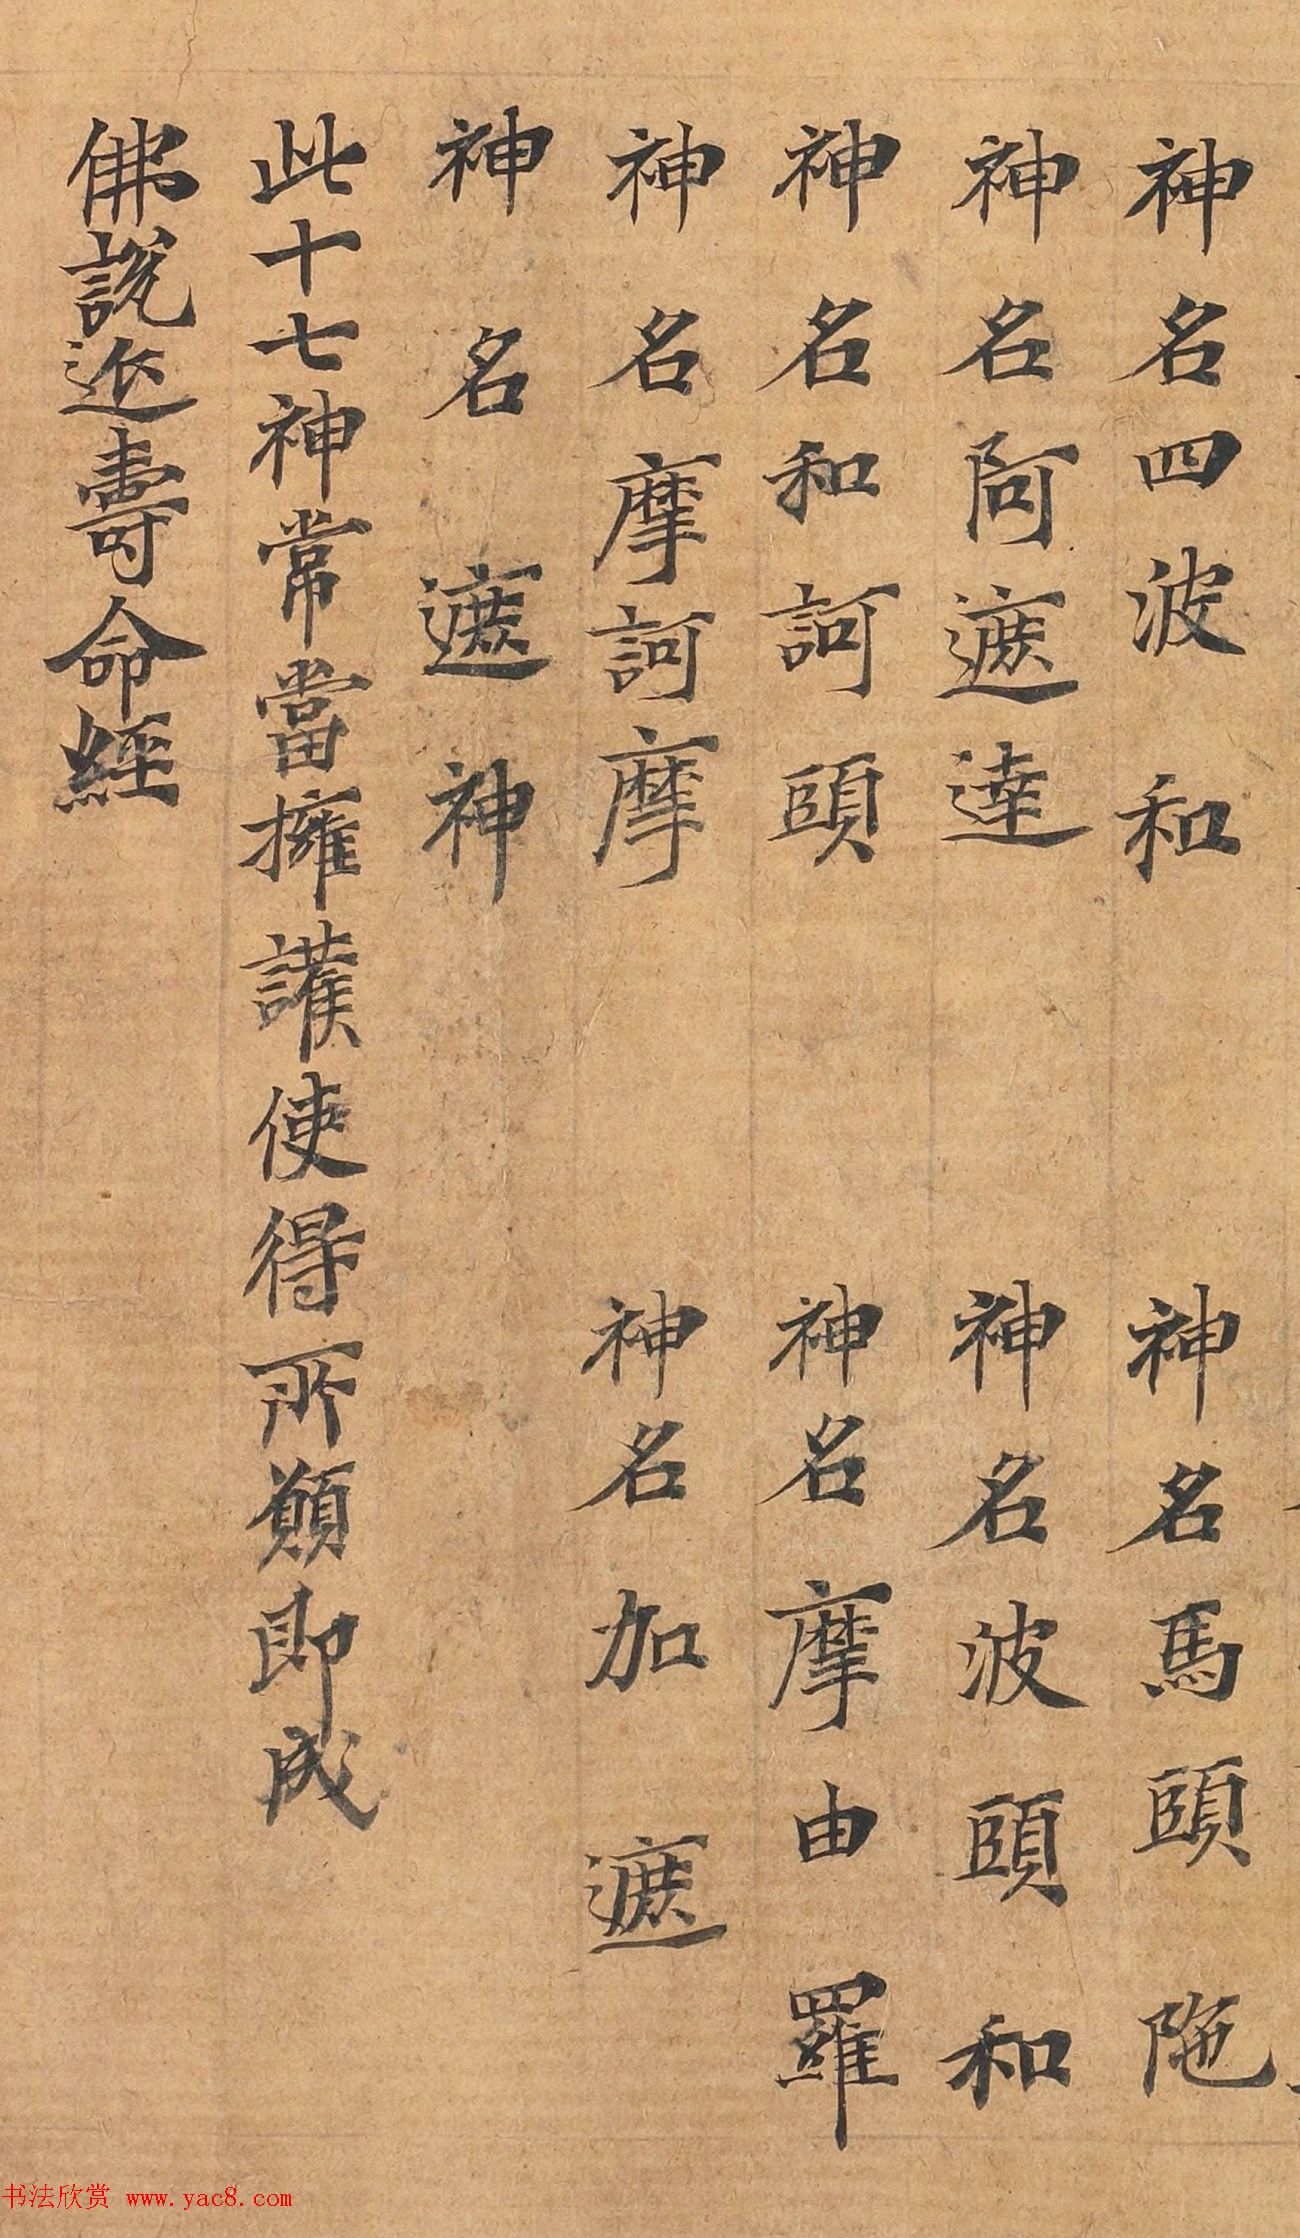 神名四波和　神名馬頭陁
神名阿遮達　神名波頭和
神名和訶頭　神名摩由羅
神名摩訶摩　神名加遮
神名遮神
此十七神常當擁護使得所願即成
佛說延壽命經
书法欣赏 www.yac8.com